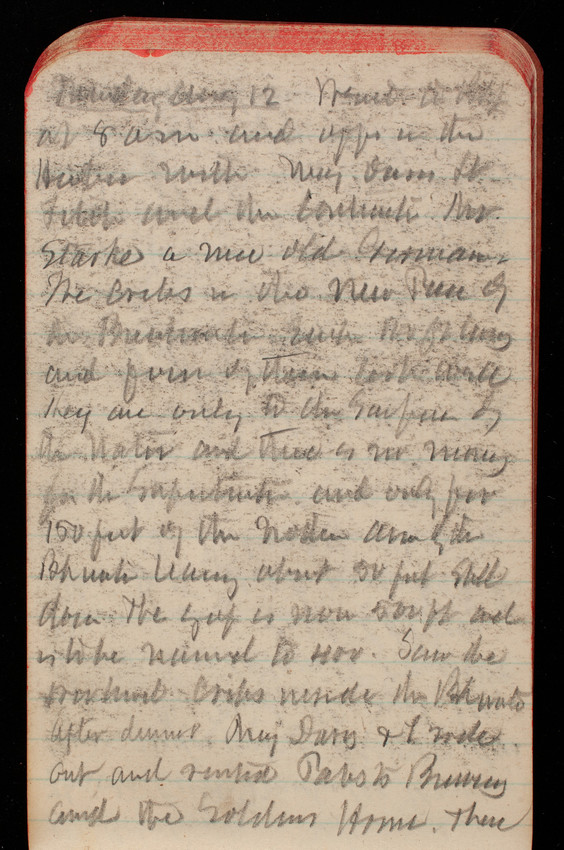 Tuesday Aug 12 Went to
at 8 a.m. and off in the
with Maj. Davis Lt.
Fitch and the Contractor Mr.
Starke a nice old German.
The Cribs in the New Piece of
the Breakwater. Each 100 ft long
and four of them look well
they are only to the Surface of
the Water and there is no money
for the Superstructure and only for
150 feet of the Northern arm of the
Bkwater leaving about 50 feet Still
down. The gap is now 500 ft and
is to be narrowed to 400. Saw the
Cribs inside the Bkwater
After dinner. Maj Davis & I rode
out and visited Pabsts Brewery
and the Soldiers Home. There